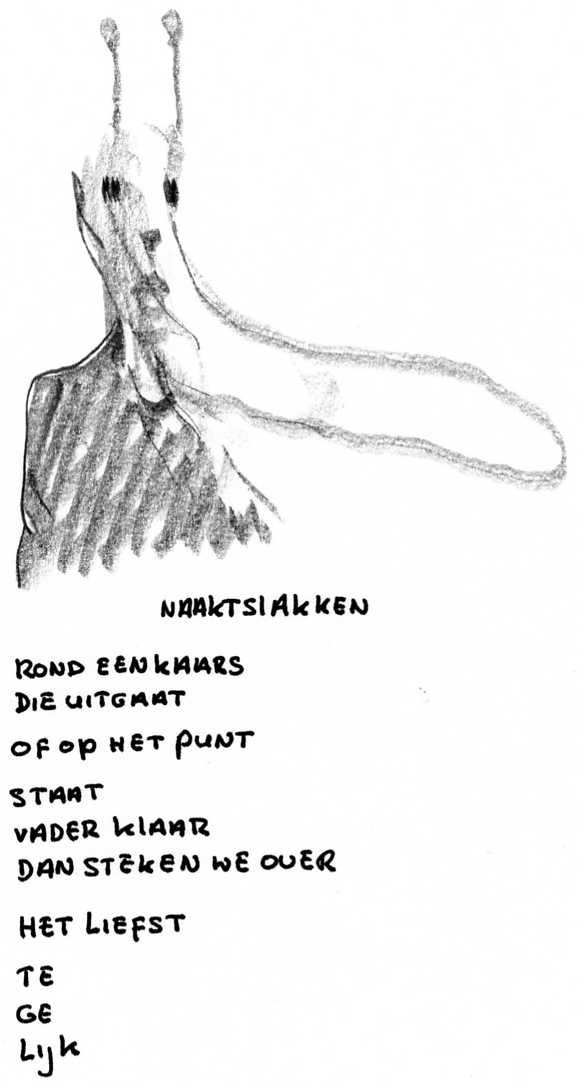 NAAKTSLAKKEN
ROND EEN KAARS
DIE UITGAAT
OF OP HET PUNT
STAAT
VADER KLAAR
DAN STEKEN WE OVER
HET LIEFST
TE
GE
LIJK